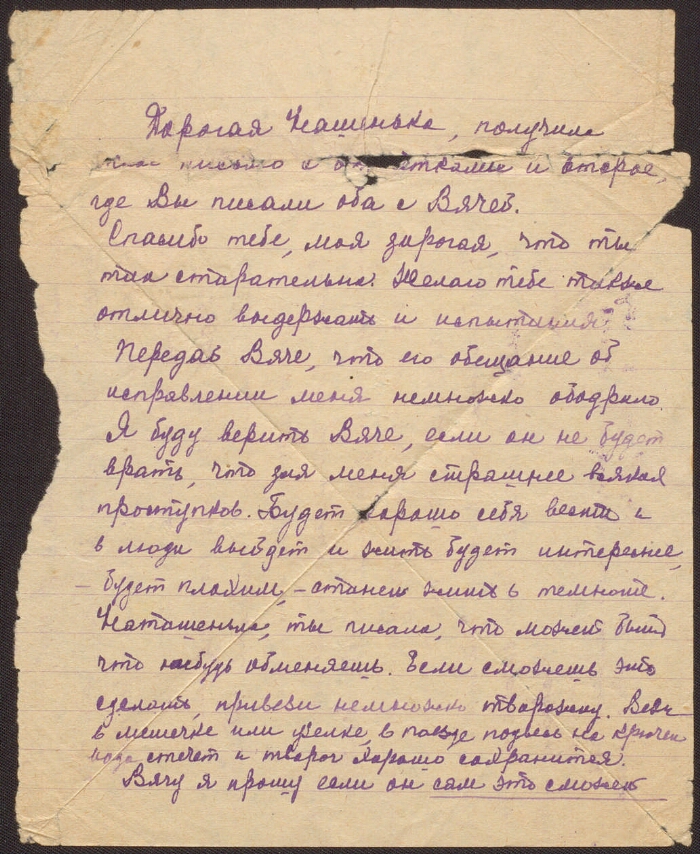 Дорогая Наташенька, получила
твое письмо с отметками и второе,
где Вы писали оба с Вячей.
Спасибо тебе, моя дорогая, что ты
так старательна. Желаю тебе также
отлично выдержать и испытания.
Передай Вяче, что его обещание об
исправлении меня немножко ободрило
Я буду верить Вяче, если он не будет
врать, что для меня страшнее всяких
проступков. Будет хорошо себя вести и
в люди выйдет и жить будет интересне,
– будет плохим, – станет жить в темноте.
Наташенька, ты писала, что может быть
что нибудь обменяешь. Если сможешь это
сделать, привези немножко творожку. Вези
в мешечке или кулке, в поезде подвесь на крючек
вода стечет и творог хорошо сохранится.
Вячу я прошу если он сам это сможет